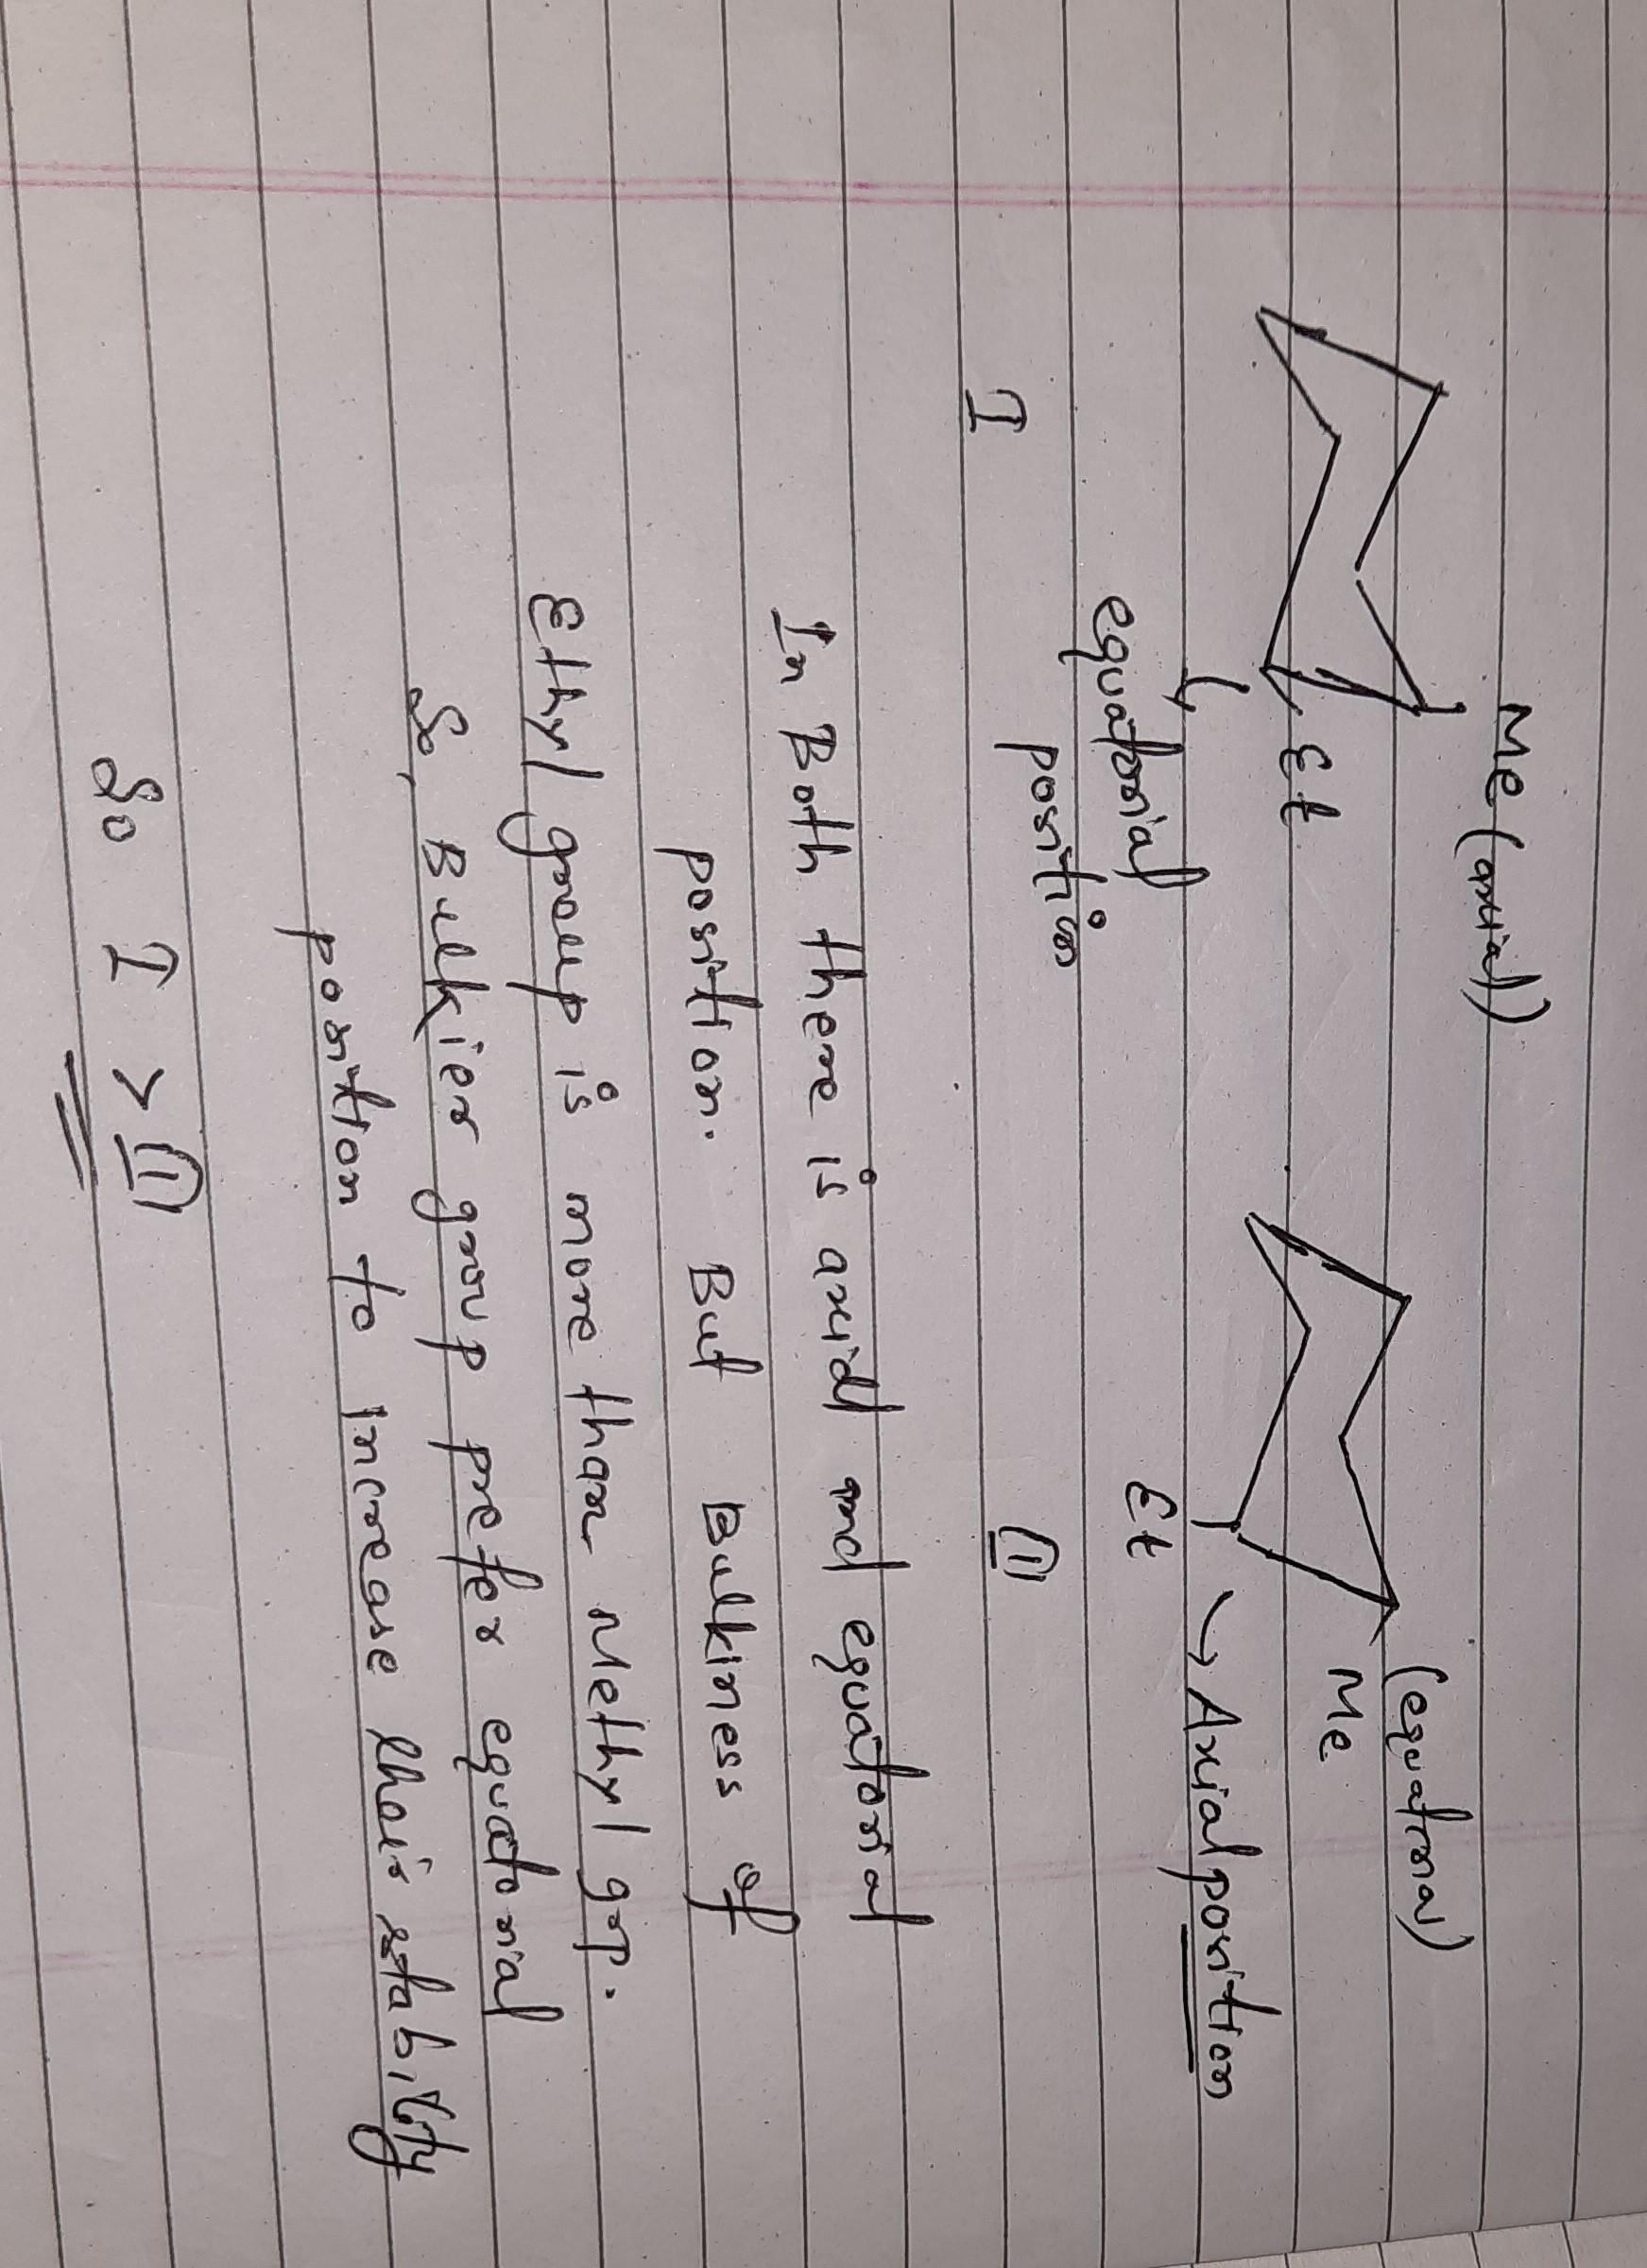 Me (axial)
Et
equatorial
position
I
(equatorial)
Me
Et → Axial position
II
In Both there is axial and equatorial
position. But Bulkiness of
Ethyl group is more than Methyl gr.
So, Bulkier group prefer equatorial
position to increase their stability
So I > II